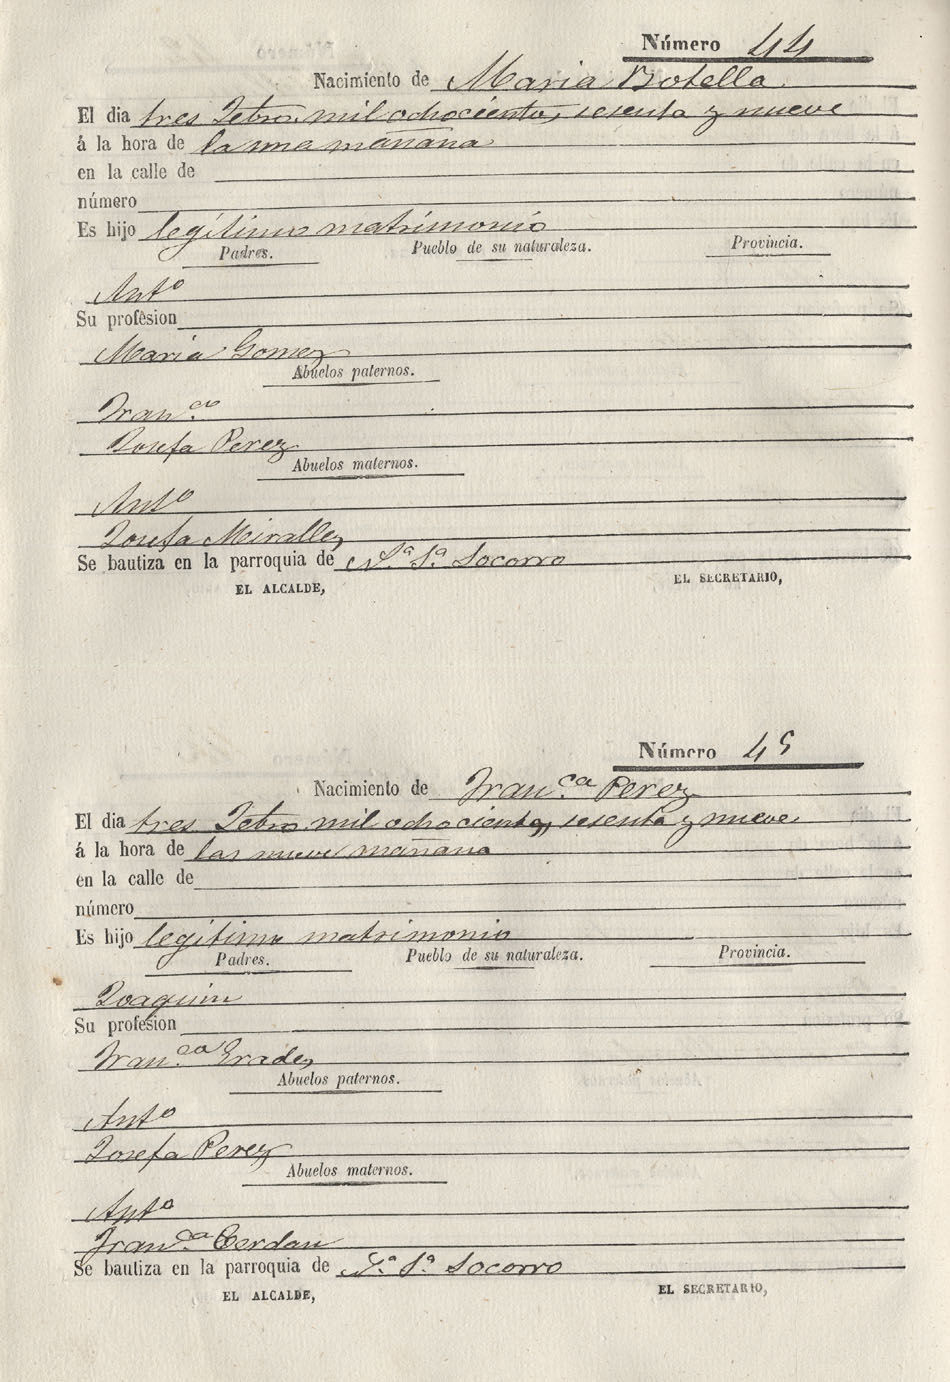 Número 44
Nacimiento de Maria Botella
El dia tres Febro. mil ochocientos sesenta y nueve
á la hora de la una mañana
en la calle de
número
Es hijo legítimo matrimonio
Padres. Pueblo de su naturaleza. Provincia.
Anto
Su profesion
Maria Gomez
Abuelos paternos.
Fran.co
Josefa Perez
Abuelos maternos.
Anto
Josefa Miralles
Se bautiza en la parroquia de N.a S.a Socorro
EL ALCALDE, EL SECRETARIO,
Número 45
Nacimiento de Fran.ca Perez
El dia tres Febro. mil ochocientos sesenta y nueve
á la hora de las nueve mañana
en la calle de
número
Es hijo legítimo matrimonio
Padres. Pueblo de su naturaleza. Provincia.
Joaquin
Su profesion
Fran.ca Prades
Abuelos paternos.
Anto
Josefa Perez
Abuelos maternos.
Anto
Fran.ca Cerdan
Se bautiza en la parroquia de N.a S.a Socorro
EL ALCALDE, EL SECRETARIO,